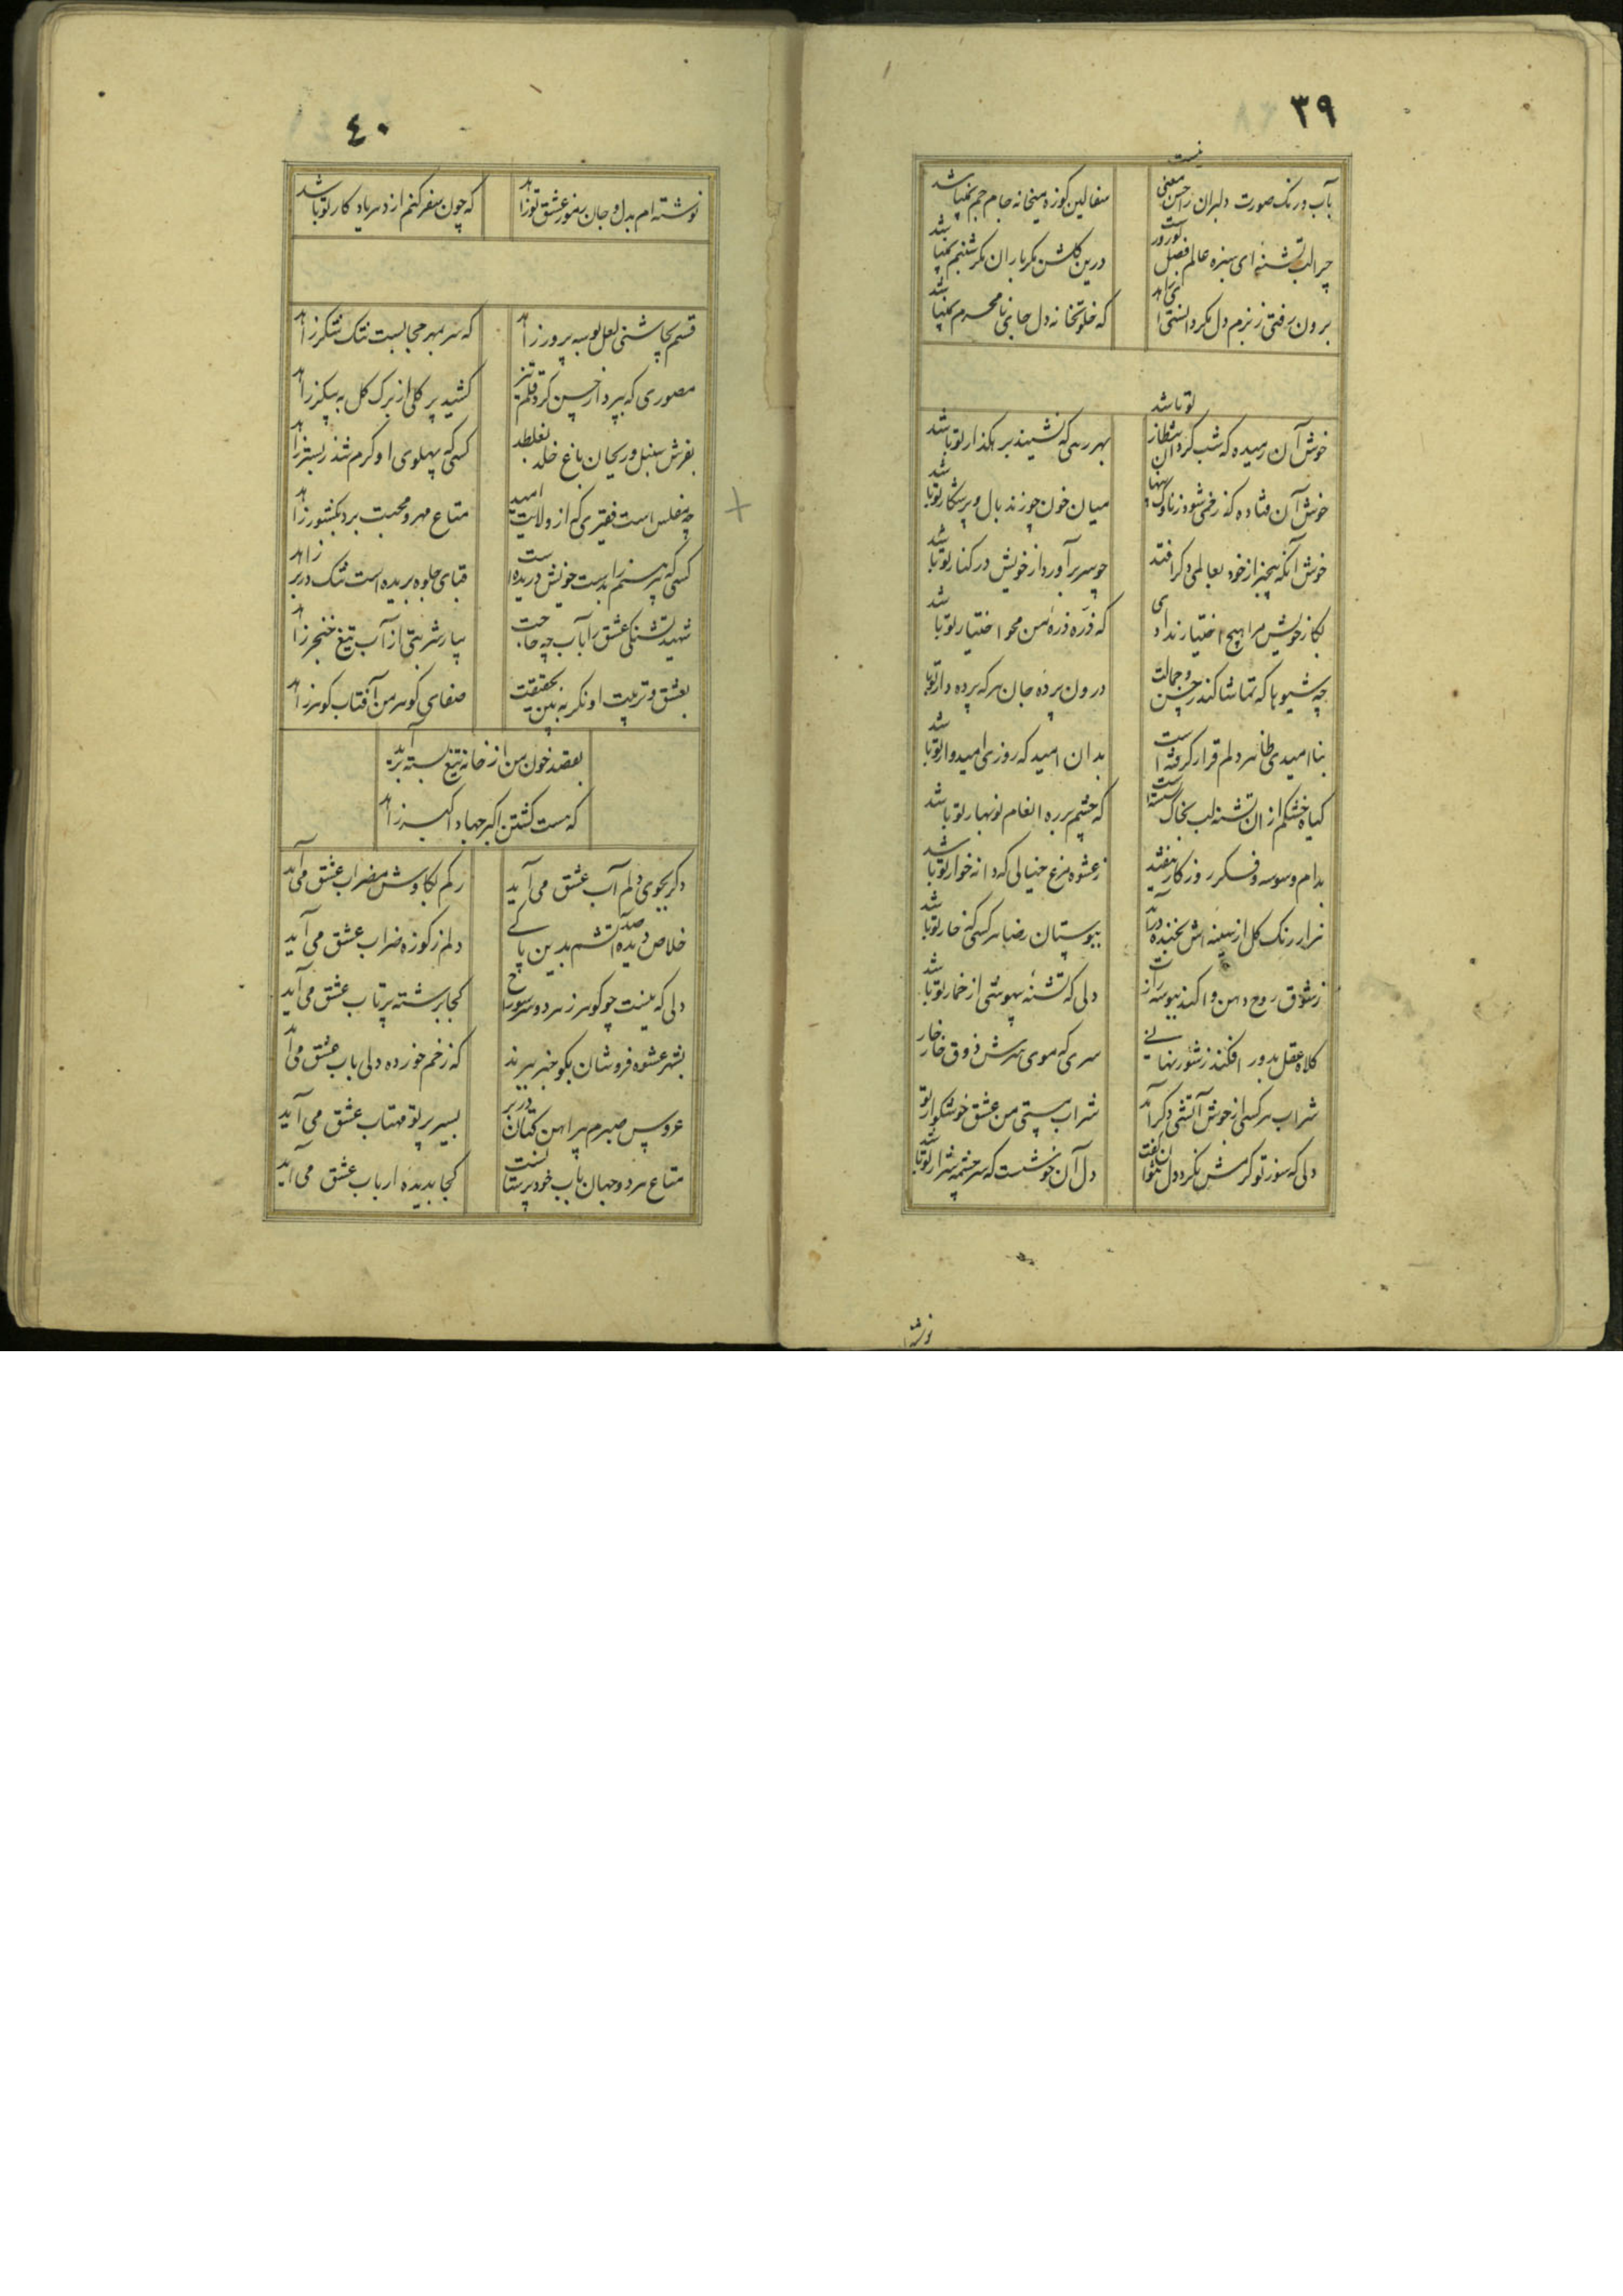 ٣٩
بآب ورنک صورت دلبران راحسن معنی نیست
سفالین کوزه میخانه جام جم نمیباشد
چرا لب تشنهٔ ای سبزه عالم فصل نوروز است
درین کلشن مکر باران مکر شبنم نمیباشد
برون رفتی ز بزم دل مکر دانستی ای زاهد
که خلوتخانه دل جای نامحرم نمیباشد
خوش آن رمیده که شب کرد انتظار تو باشد
بهر رهی که نشیند بر هکذار تو باشد
خوش آن فتاده که زخمی شود ز ناوک
میان خون چو زند بال و پر شکار تو باشد
خوش آنکه بیخبر از خود بعالمی دکر افتد
چو سر برآورد از خویش در کنار تو باشد
بکار خویش مرا هیچ اختیار ندادی
که ذره ذرهٔ من محو اختیار تو باشد
چه شیوها که تماشا کند ز حسن و جمالت
درون پرده جان هر که پرده دار تو
بنا امیدی دلم قرار کرفته است
بدان امید که روزی امیدوار تو باشد
کیاه خشکم از ان تشنه لب بخاک
که چشم بر ره انعام نوبهار تو باشد
بدام وسوسه و فکر روزکار نیفتید
ز عشوه مرغ خیالی که دانه خوار تو باشد
هزار رنک کل از سینه اش بخنده درآید
ببوستان رضا هر کسی که خار تو باشد
ز شوق روح دهن وا کند ببوسه
دلی که تشنهٔ بیهوشی از خمار تو باشد
کلاه عقل بدور افکند ز شور نهانی
سری که موی سرش ذوق خار خار
شراب هر کسی از جوش آتشی دکر آمد
شراب هستی من عشق خوشکوار تو
دلی که سوز تو کرمش نکرد دل نتوان گفت
دل آن خوشست که سرچشمه شرار تو باشد
نوشته
٤٠
نوشته ام بدل و جان رموز عشق تو زاهد
که چون سفر کنم از دهر یادکار تو باشد
قسم بچاشنی لعل بوسه پرور زاهد
که سر بمهر حجابست تنک شکر زاهد
مصوری که بپرداز حسن کرد قلم تیز
کشید پر کلی از برک کل به پیکر زاهد
بفرش سنبل و ریحان باغ خلد نغلطد
کسی که پهلوی او کرم شد ز بستر زاهد
چه مفلس است فقیری که از ولایت امید
متاع مهر و محبت برد بکشور زاهد
کسی که پیرهنم را بدست خویش دریده است
قبای جلوه بریده است تنک در بر زاهد
شهید تشنکی عشق را بآب چه حاجت
بیار شربتی از آب تیغ خنجر زاهد
بعشق و تربیت او نکر به بین بحقیقت
صفای کوهر من آفتاب کوهر زاهد
بقصد خون من از خانه تیغ بسته برآید
که هست کشتن اکبر جهاد اکبر زاهد
دکر بجوی دلم آب عشق می آید
رکم بکاوش مضراب عشق می آید
دلم ز کوزه ضراب عشق می آید
دلی که نیست چو کوهر ز هر دو سر سوراخ
کجا برشته پرتاب عشق می آید
بشهر عشوه فروشان بکو خبر ببرند
که زخم خورده دلی باب عشق می آید
عروس صبرم پیراهن کتان در بر
بسیر پرتو مهتاب عشق می آید
متاع هر دو جهان باب خود پرستانست
کجا بدیده ارباب عشق می آید